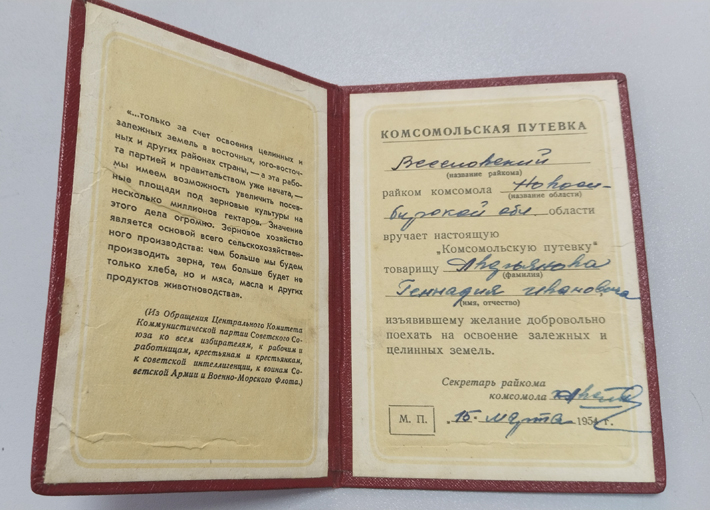 «...только за счет освоения целинных и
залежных земель в восточных, юго-восточ-
ных и других районах страны,—а эта рабо-
та партией и правительством уже начата,—
мы имеем возможность увеличить посев-
ные площади под зерновые культуры на
несколько миллионов гектаров. Значение
этого дела огромно. Зерновое хозяйство
является основой всего сельскохозяйствен-
ного производства: чем больше мы будем
производить зерна, тем больше будет не
только хлеба, но и мяса, масла и других
продуктов животноводства».
(Из Обращения Центрального Комитета
Коммунистической партии Советского Со-
юза ко всем избирателям, к рабочим и
работницам, крестьянам и крестьянкам,
к советской интеллигенции, к воинам Со-
ветской Армии и Военно-Морского Флота.)
КОМСОМОЛЬСКАЯ ПУТЕВКА
(название райкома)
райком комсомола Новоси-
(название области)
бирской обл. области
вручает настоящую
„Комсомольскую путевку"
товарищу
(фамилия)
Геннадия Ивановича
(имя, отчество)
изъявившему желание добровольно
поехать на освоение залежных и
целинных земель.
Секретарь райкома
комсомола
М. П. „15" марта 1954 г.